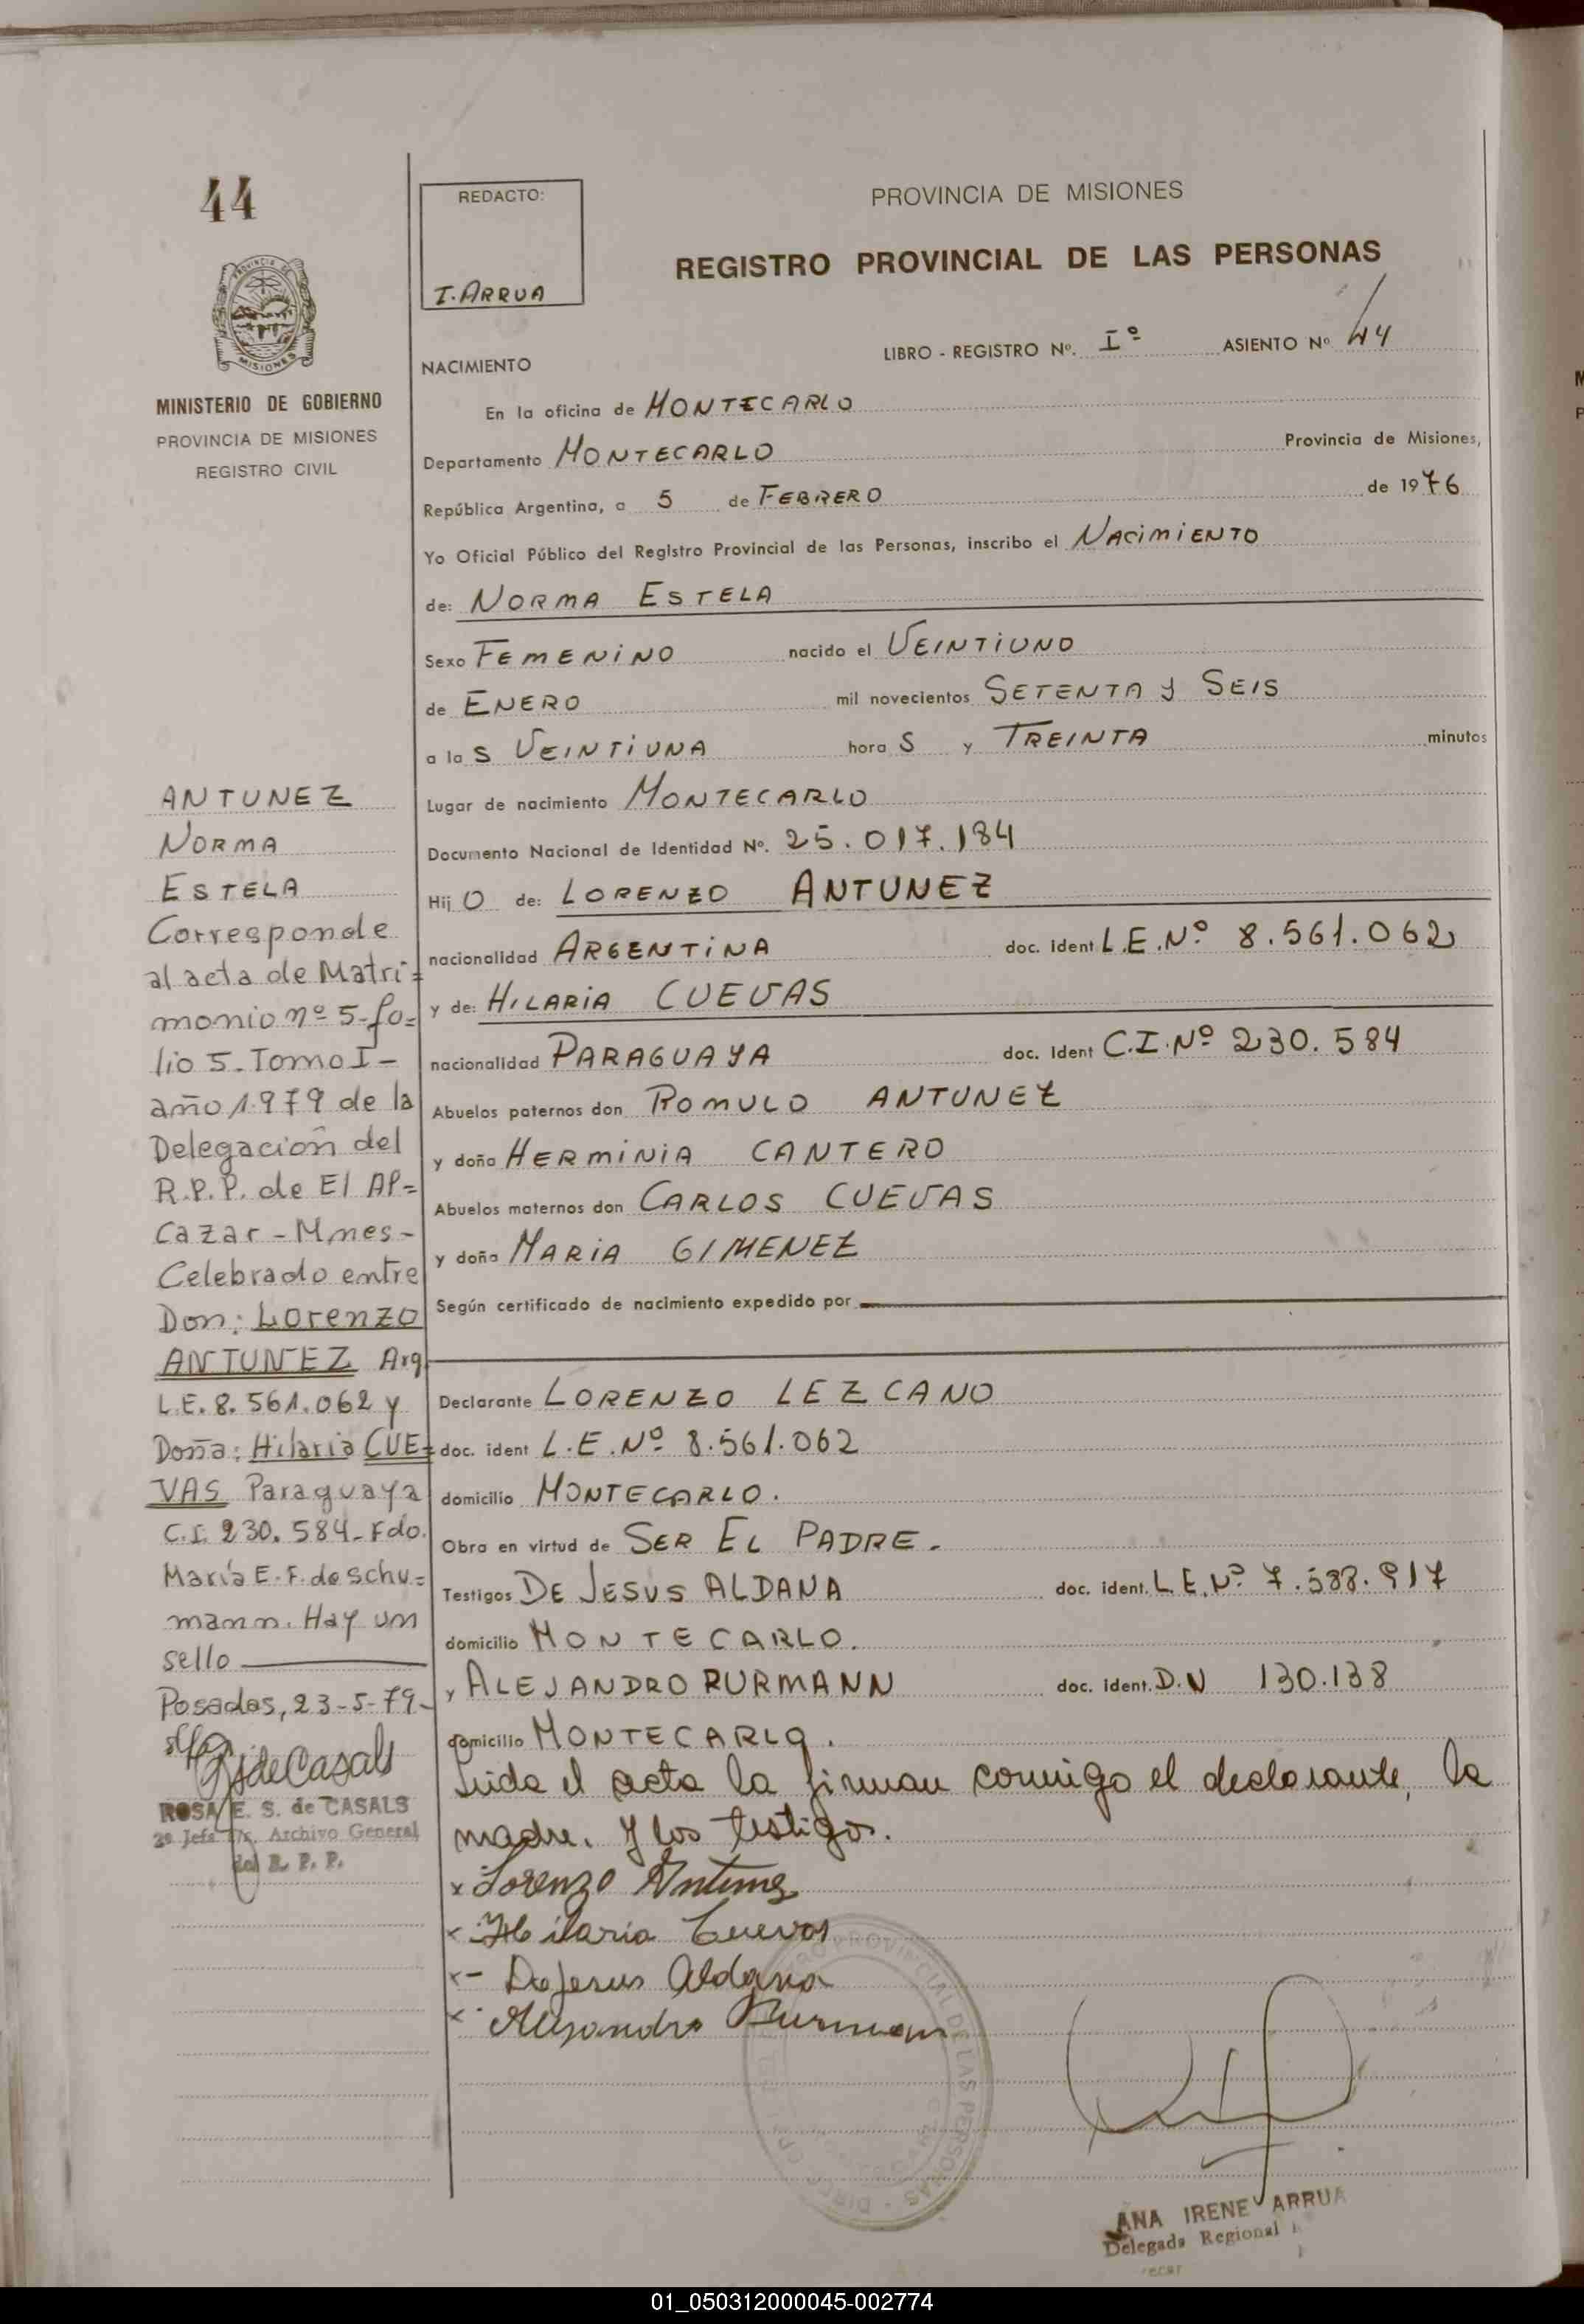 44
PROVINCIA DE MISIONES
MINISTERIO DE GOBIERNO
PROVINCIA DE MISIONES
REGISTRO CIVIL
ANTUNEZ
NORMA
ESTELA
Corresponde
al acta de Matri=
monio nº 5-fo=
lio 5-Tomo I-
año 1.979 de la
Delegación del
R.P.P. de El AL=
Cazar - Mnes-
Celebrado entre
Don: Lorenzo
ANTUNEZ Arg.
L.E. 8.561.062 y
Doña: Hilaria CUE=
VAS Paraguaya
C.I. 230.584-Fdo.
María E.F. de Schu=
mann. Hay un
sello
Posadas, 23-5-79-
ROSA E. S. de CASALS
2º Jefe Archivo General
del R. P. P.
REDACTO:
I. ARRUA
PROVINCIA DE MISIONES
REGISTRO PROVINCIAL DE LAS PERSONAS
LIBRO - REGISTRO Nº. Iº ASIENTO Nº 44
NACIMIENTO
En la oficina de MONTECARLO
Departamento MONTECARLO Provincia de Misiones,
República Argentina, a 5 de FEBRERO de 1976
Yo Oficial Público del Registro Provincial de las Personas, inscribo el NACIMIENTO
de: NORMA ESTELA
Sexo FEMENINO nacido el VEINTIUNO
de ENERO mil novecientos SETENTA Y SEIS
a las VEINTIUNA horas y TREINTA minutos
Lugar de nacimiento MONTECARLO
Documento Nacional de Identidad Nº. 25.017.184
Hijo de: LORENZO ANTUNEZ
nacionalidad ARGENTINA doc. ident L.E.Nº 8.561.062
y de: HILARIA CUEVAS
nacionalidad PARAGUAYA doc. Ident C.I.Nº 230.584
Abuelos paternos don ROMULO ANTUNEZ
y doña HERMINIA CANTERO
Abuelos maternos don CARLOS CUEVAS
y doña MARIA GIMENEZ
Según certificado de nacimiento expedido por
Declarante LORENZO LEZCANO
doc. ident L.E.Nº 8.561.062
domicilio MONTECARLO.
Obra en virtud de SER EL PADRE.
Testigos DE JESUS ALDANA doc. ident. L.E.Nº 7.588.917
domicilio MONTECARLO.
y ALEJANDRO RURMANN doc. ident. D.N 130.138
domicilio MONTECARLO.
Leida el acta la firman conmigo el declarante, la
madre. y los testigos.
x Lorenzo Antunez
x Hilaria Cuevas
x- Dejesus Aldana
x Alejandro
ANA IRENE ARRUA
Delegada Regional
01_050312000045-002774